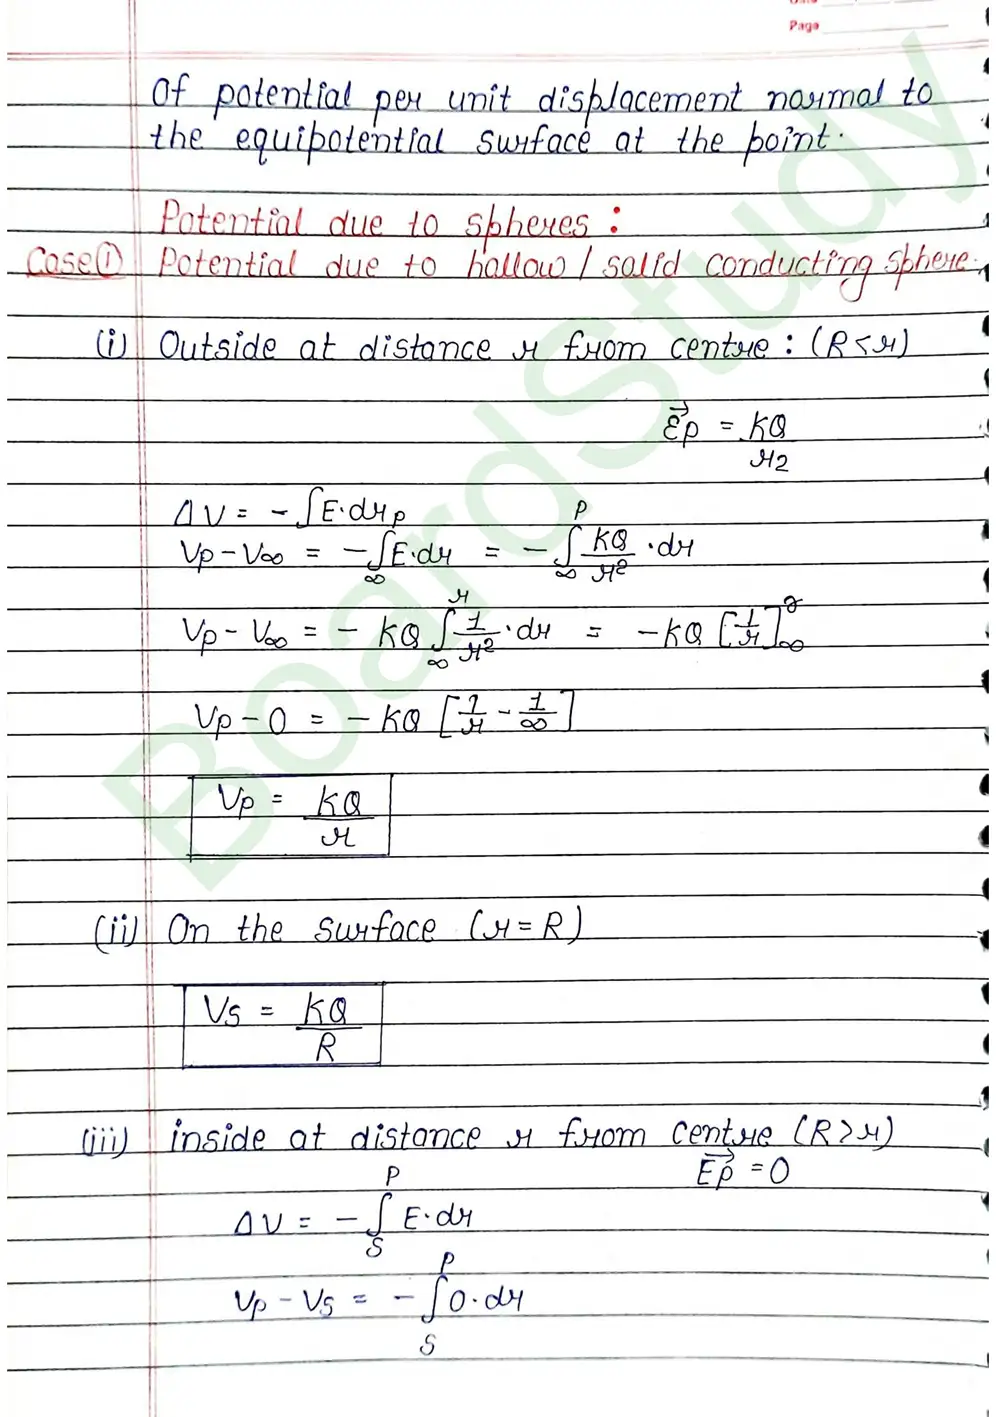 Page
of potential per unit displacement normal to
the equipotential surface at the point.
Potential due to spheres :
Case ① Potential due to hallow / salid conducting sphere.
(i) Outside at distance r from centre : (R < r)
E⃗p = KQ / r2
ΔV = - ∫E·dr
Vp - V∞ = - ∫∞^P E·dr = - ∫∞^P KQ/r² · dr
Vp - V∞ = - KQ ∫∞^r 1/r² · dr = - KQ [1/r]∞^r
Vp - 0 = - KQ [1/r - 1/∞]
Vp = KQ / r
(ii) On the surface (r = R)
Vs = KQ / R
(iii) inside at distance r from centre (R > r)
E⃗p = 0
ΔV = - ∫S^P E·dr
Vp - Vs = - ∫S^P 0·dr
BoardStudy